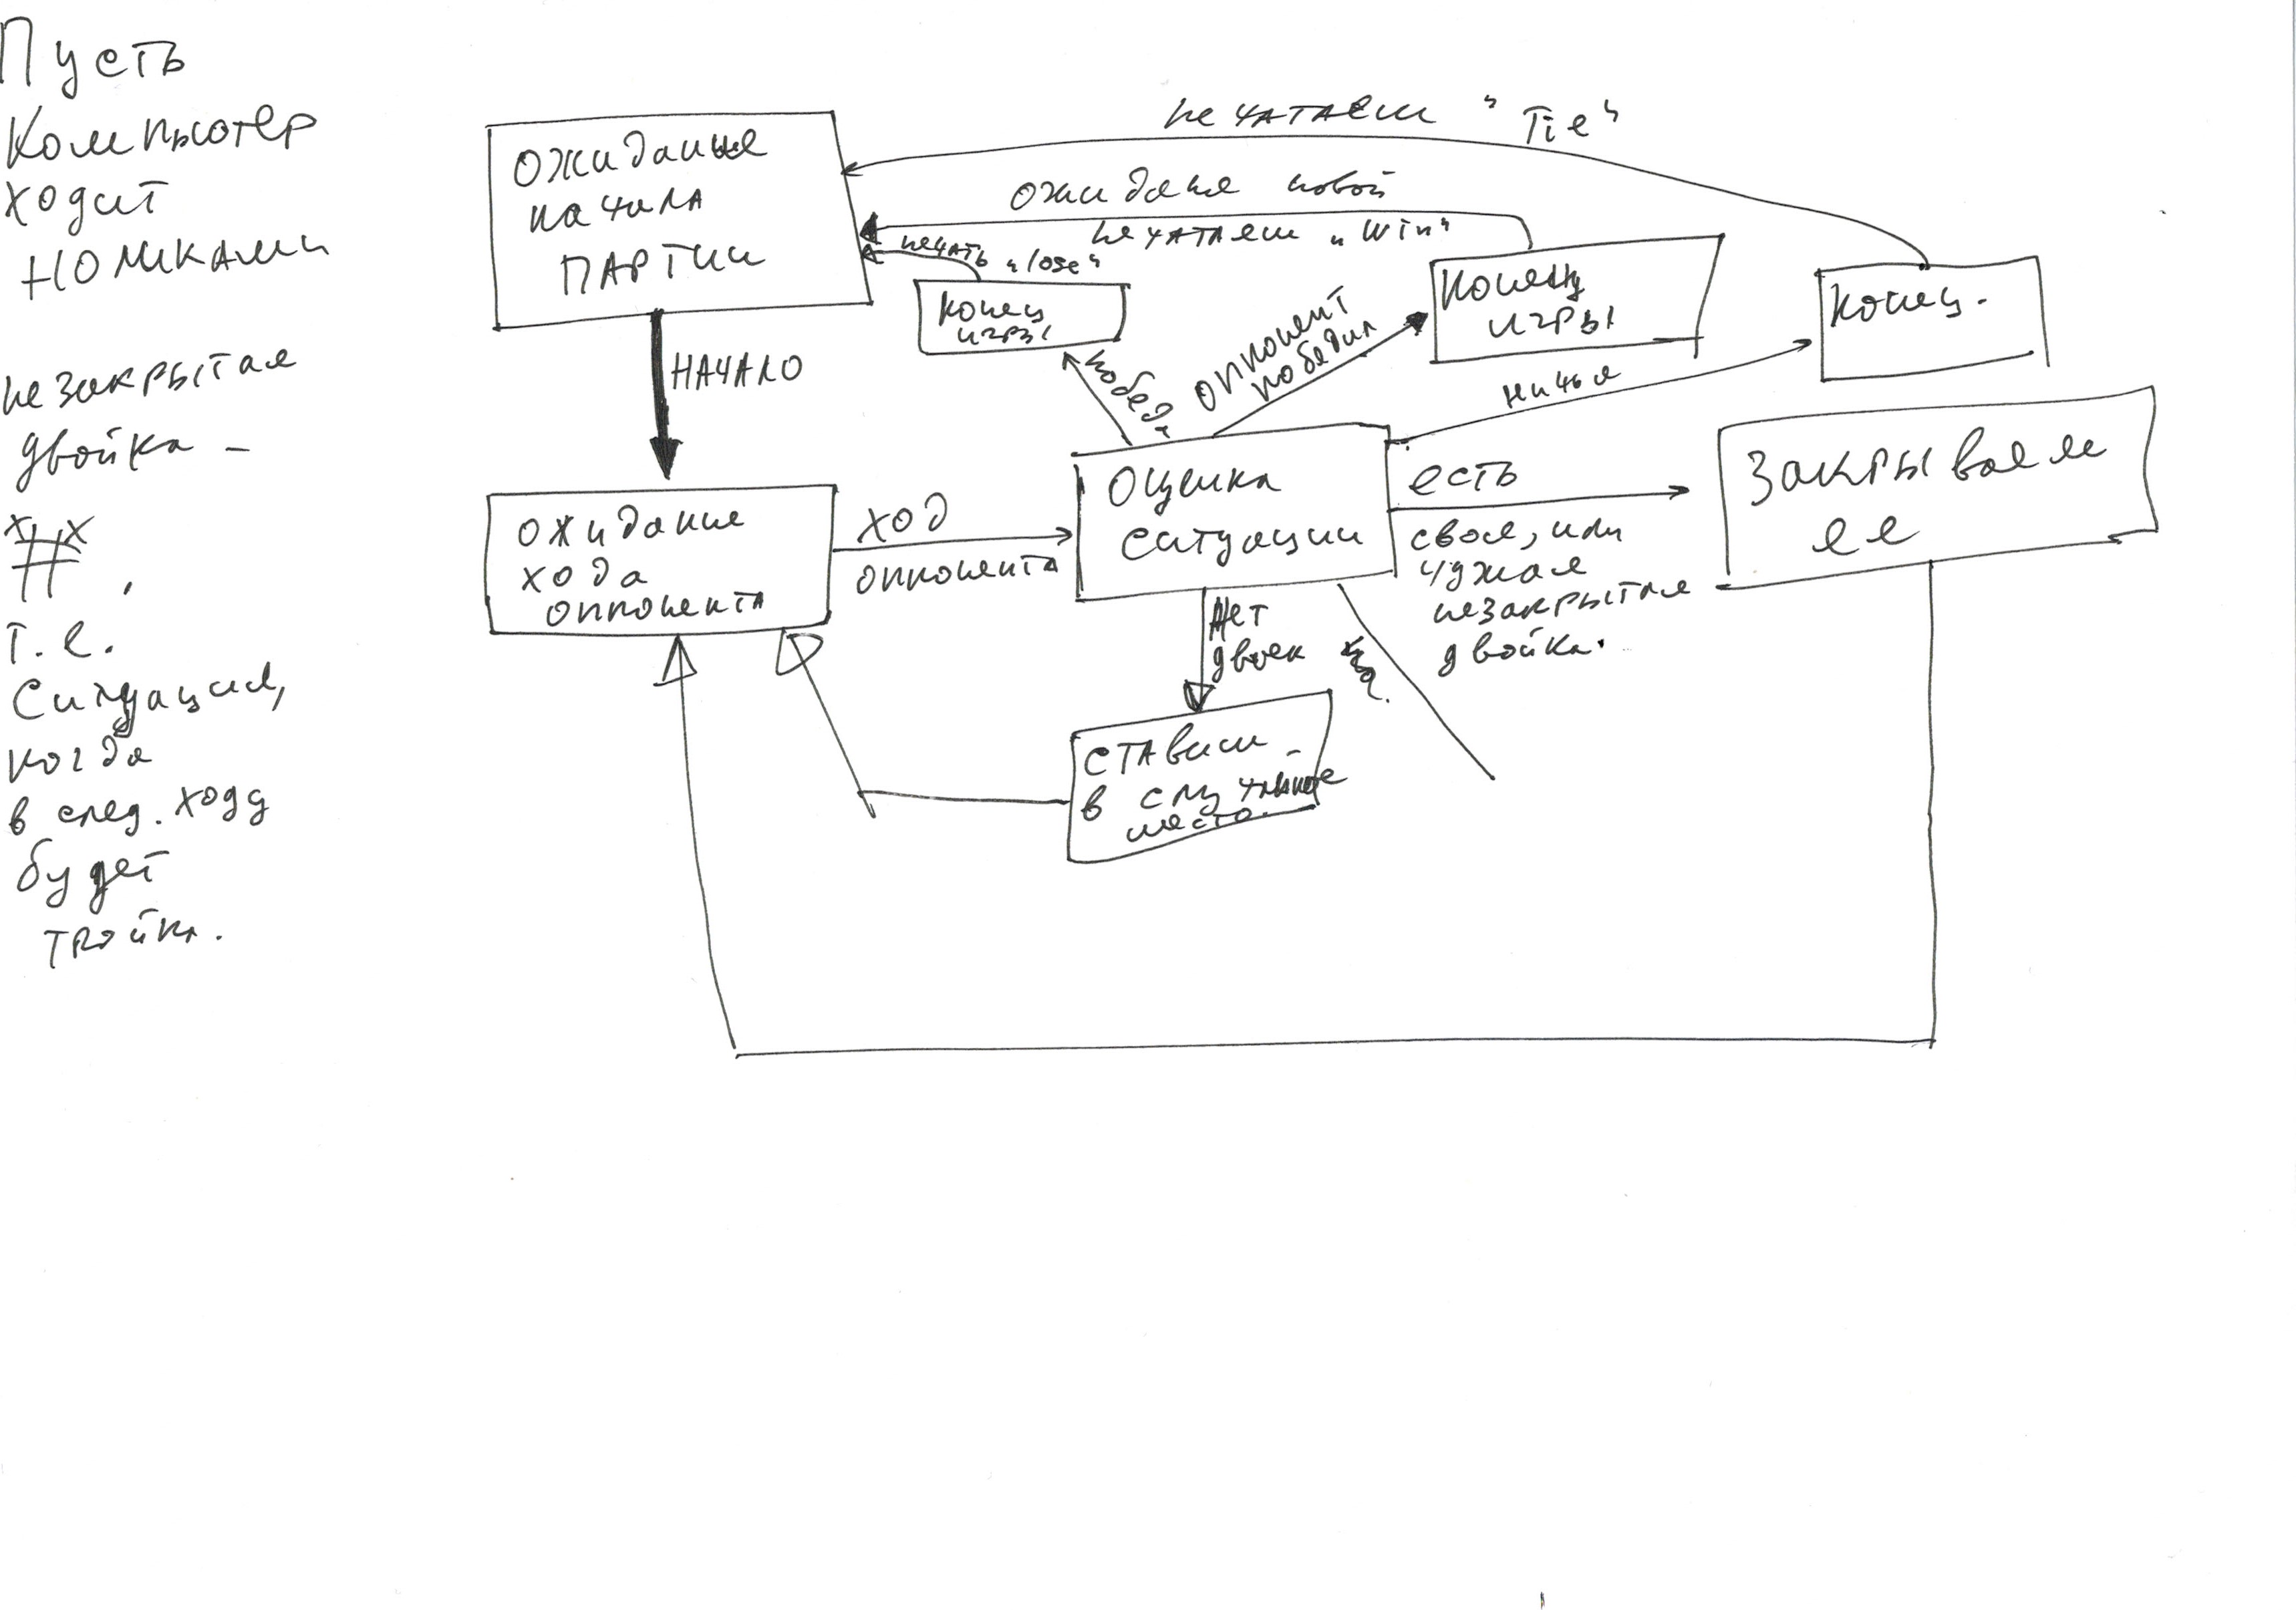 Пусть
Компьютер
ходит
ноликами
незакрытая
двойка -
х х
т.е.
Ситуация,
когда
в след. ходу
будет
тройка.
печатаем "Tie"
ожидание
начала
партии
ожидане новой
печатаем "Win"
печать "lose"
конец
игры
конец
игры
конец.
начало
победа
оппонент
победил
ничья
ожидание
хода
оппонента
ход
оппонента
Оценка
ситуации
есть
своя, или
чужая
незакрытая
двойка.
Закрываем
ее
Нет
двоек
ставим
в случайное
место.